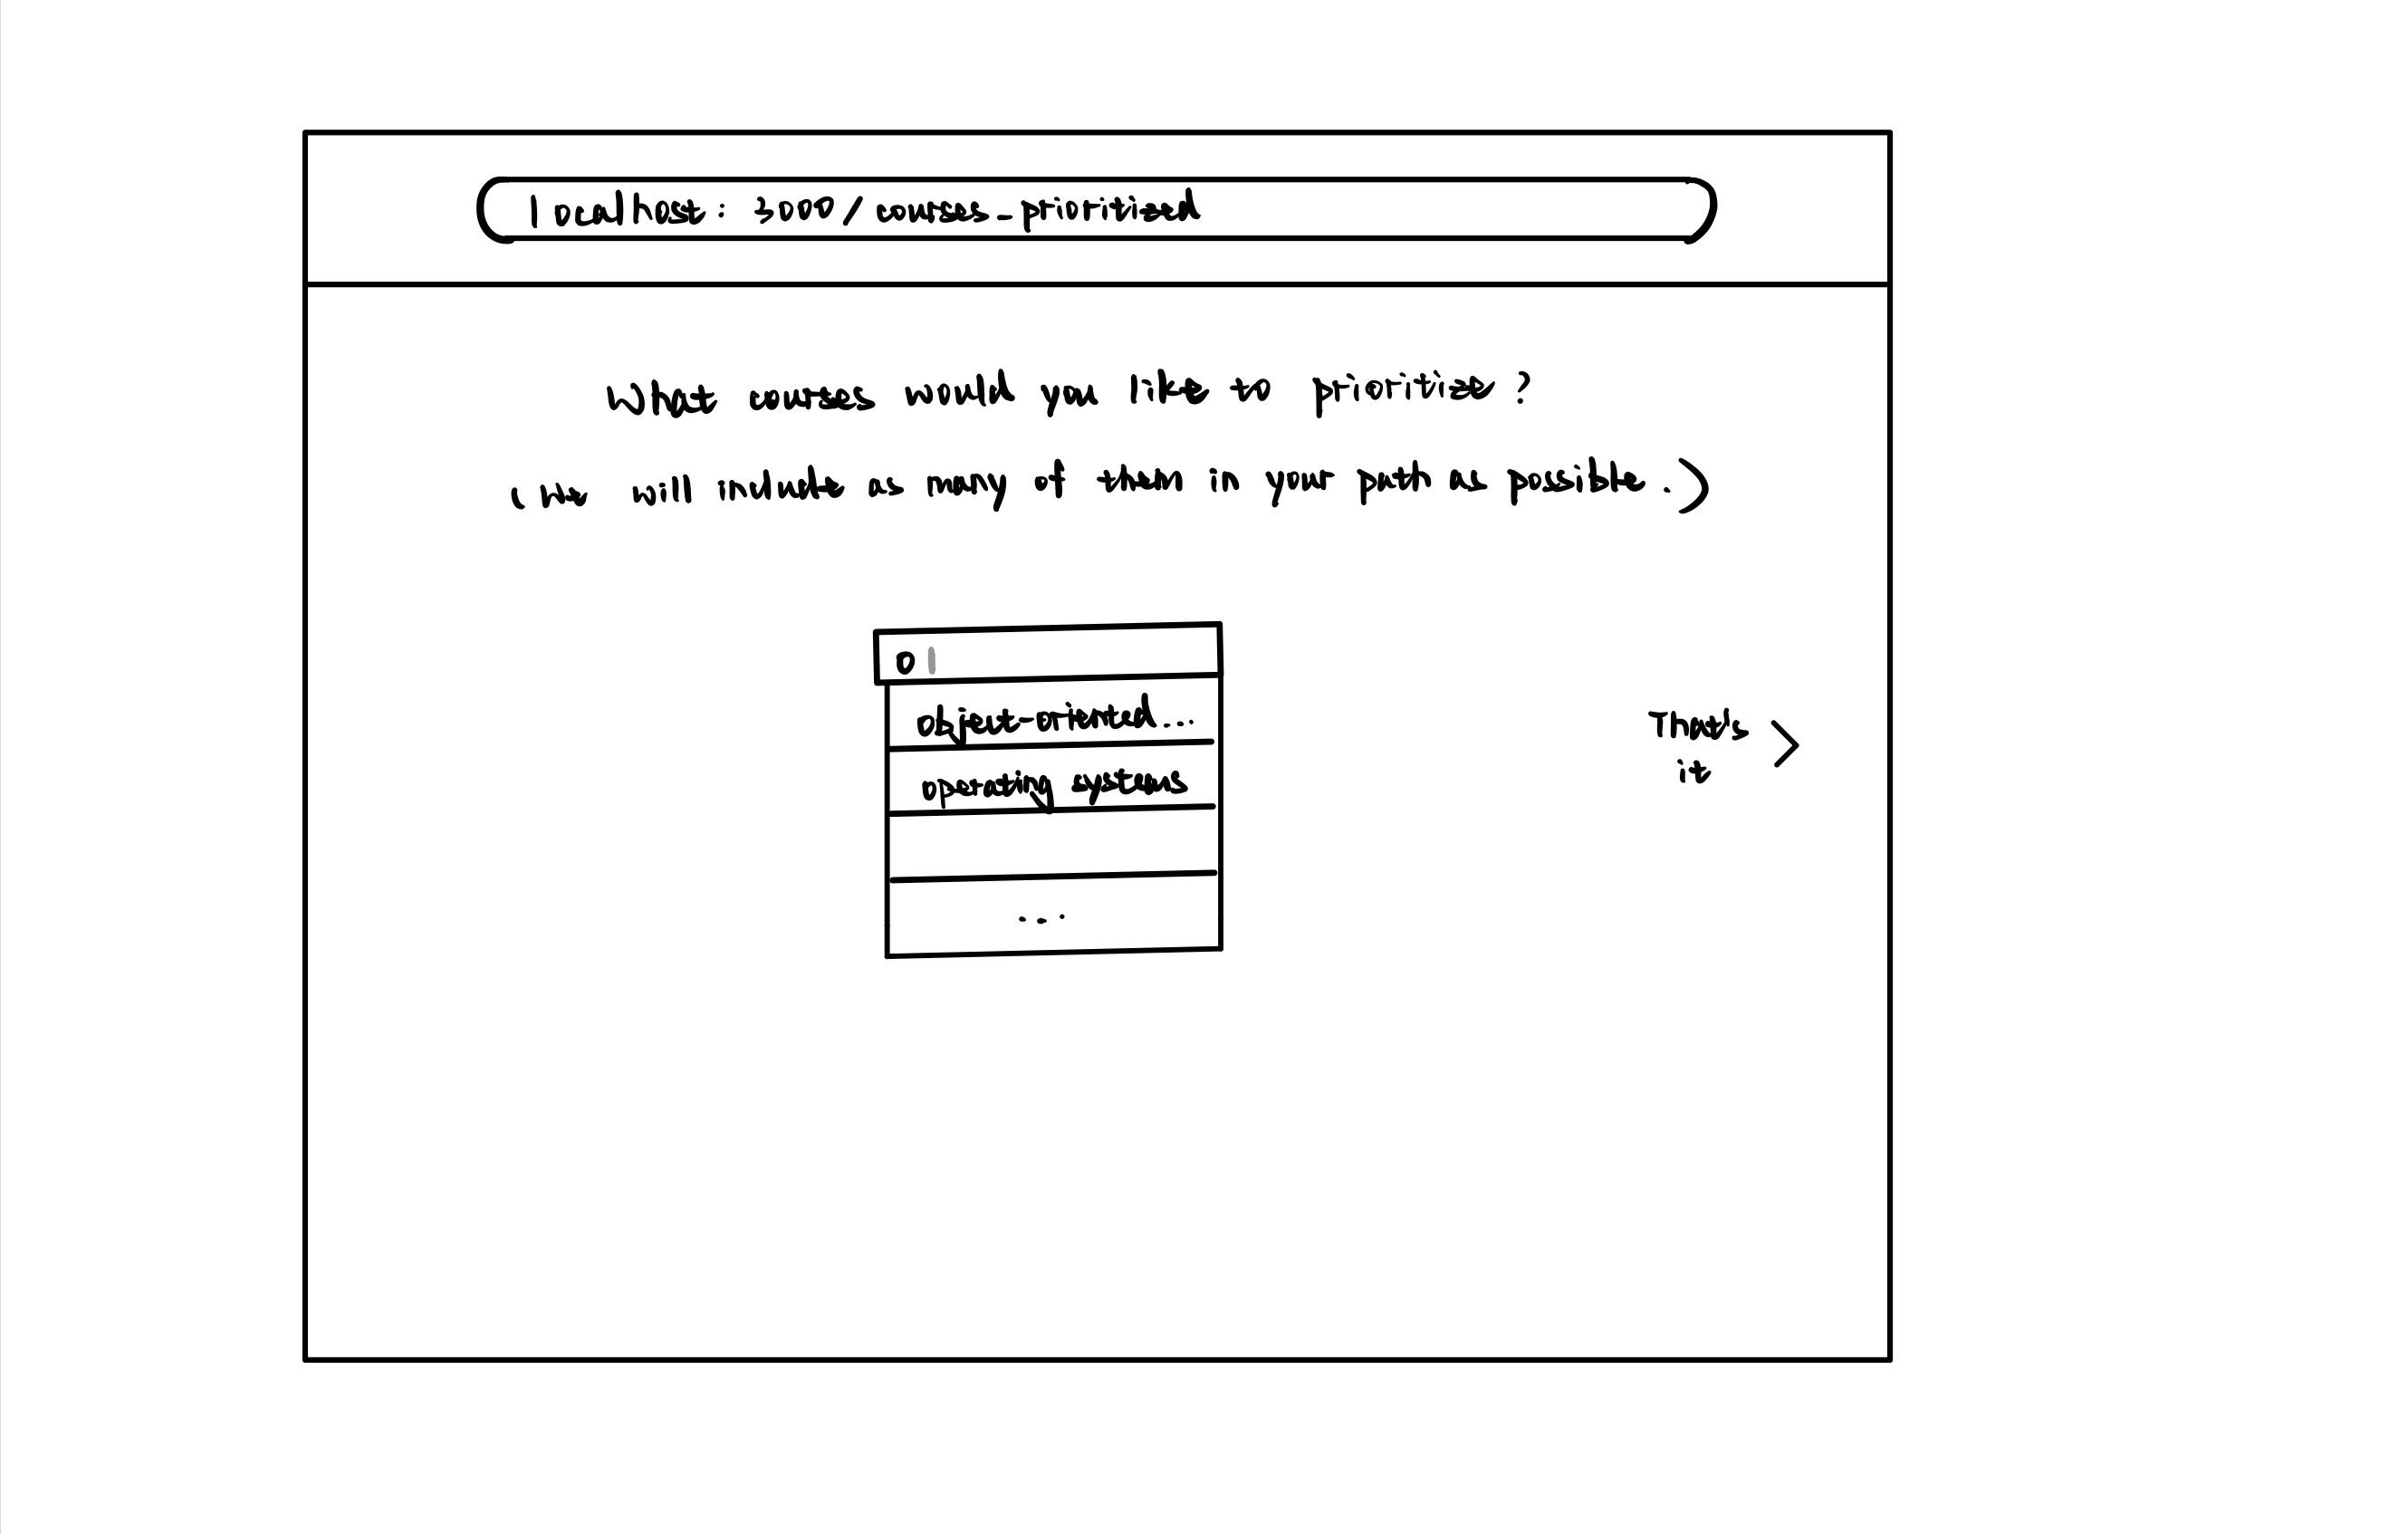 localhost: 3000/courses_prioritized
What courses would you like to prioritize?
(We will include as many of them in your path as possible.)
o
object-oriented...
operating systems
...
That's
it >